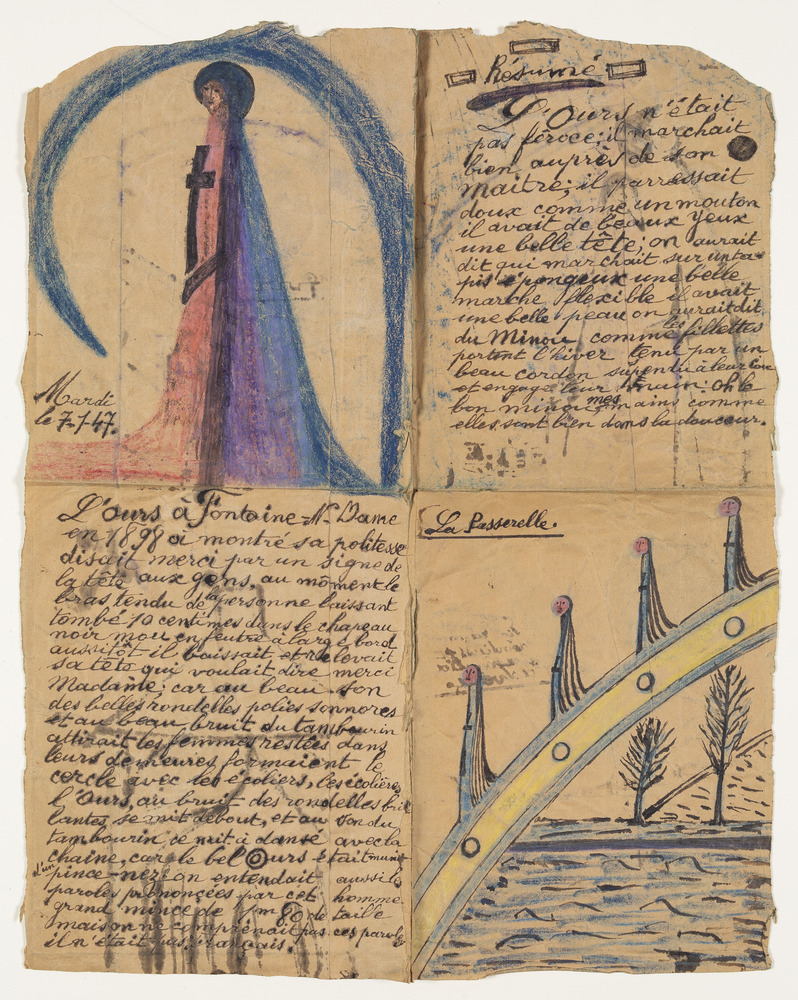 Mardi
le 7-1-47.
Résumé
L'Ours n'était
pas féroce; il marchait
bien auprès de son
maitre; il parressait
doux comme un mouton
il avait de beaux yeux
une belle tête; on aurait
dit qui marchait sur un ta=
pis épongeux une belle
marche flexible il avait
une belle peau on auraitdit
du Minou comme les fillettes
portent l'hiver tenu par un
beau cordon supendu à leur
et engage leur main: oh le
bon minou mes mains comme
elles sont bien dans la douceur.
L'ours à Fontaine-N-Dame
en 1898 à montré sa politesse
disait merci par un signe de
la tête aux gens, au moment le
bras tendu de la personne laissant
tombé 10 centimes dans le chapeau
noir mou en feutre à large bord
aussitôt il baissait et relevait
sa tête qui voulait dire merci
Madame; car au beau son
des belles rondelles polies sonnores
et au beau bruit du tambourin
attirait les femmes restées dans
leurs demeures formaient le
cercle avec les écoliers, les écolières
l'Ours, au bruit des rondelles bril
lantes se mit debout, et au son du
tambourin ce mit à dansé avec la
chaine, car le bel Ours était muni
d'un pince-nez; on entendait aussi les
paroles prononcées par cet homme
grand mince de 1m80 de taille
mais on ne comprenait pas ces parole
il n'était pas français.
La Passerelle.